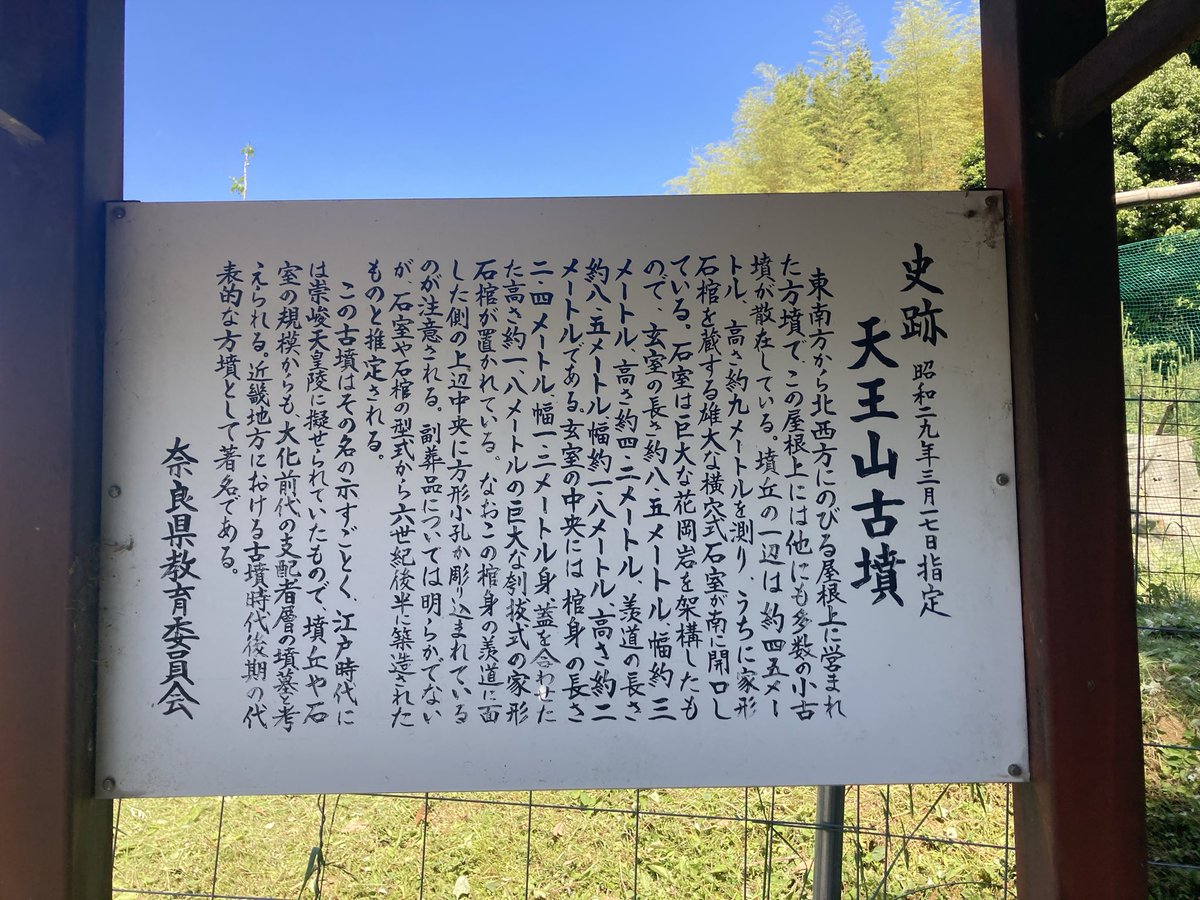 史跡 昭和二九年三月一七日指定
天王山古墳
東南方から北西方にのびる屋根上に営まれ
た方墳で、この屋根上には他にも多数の小古
墳が散在している。墳丘の一辺は約四五メー
トル、高さ約九メートルを測り、うちに家形
石棺を蔵する雄大な横穴式石室が南に開口し
ている。石室は巨大な花岡岩を架構したも
ので、玄室の長さ約八・五メートル、幅約三
メートル、高さ約四・二メートル、羨道の長さ
約八・五メートル、幅約一・八メートル、高さ約二
メートルである。玄室の中央には棺身の長さ
二・四メートル、幅一・二メートル、身蓋を合わせた
た高さ約一・八メートルの巨大な刳抜式の家形
石棺が置かれている。なおこの棺身の羨道に面
した側の上辺中央に方形小孔か彫り込まれている
のが注意される。副葬品については明らかでない
が、石室や石棺の型式から六世紀後半に築造された
ものと推定される。
この古墳はその名の示すごとく、江戸時代に
は崇峻天皇陵に擬せられていたもので、墳丘や石
室の規模からも、大化前代の支配者層の墳墓と考
えられる。近畿地方における古墳時代後期の代
表的な方墳として著名である。
奈良県教育委員会